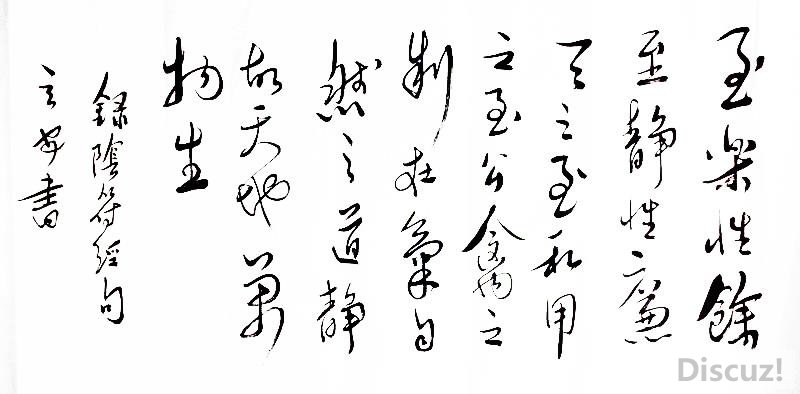 至樂性餘
至靜性廉
天之至私用
之至公禽之
制在氣自
然之道靜
故天地萬
物生
錄陰符經句
書
Discuz!